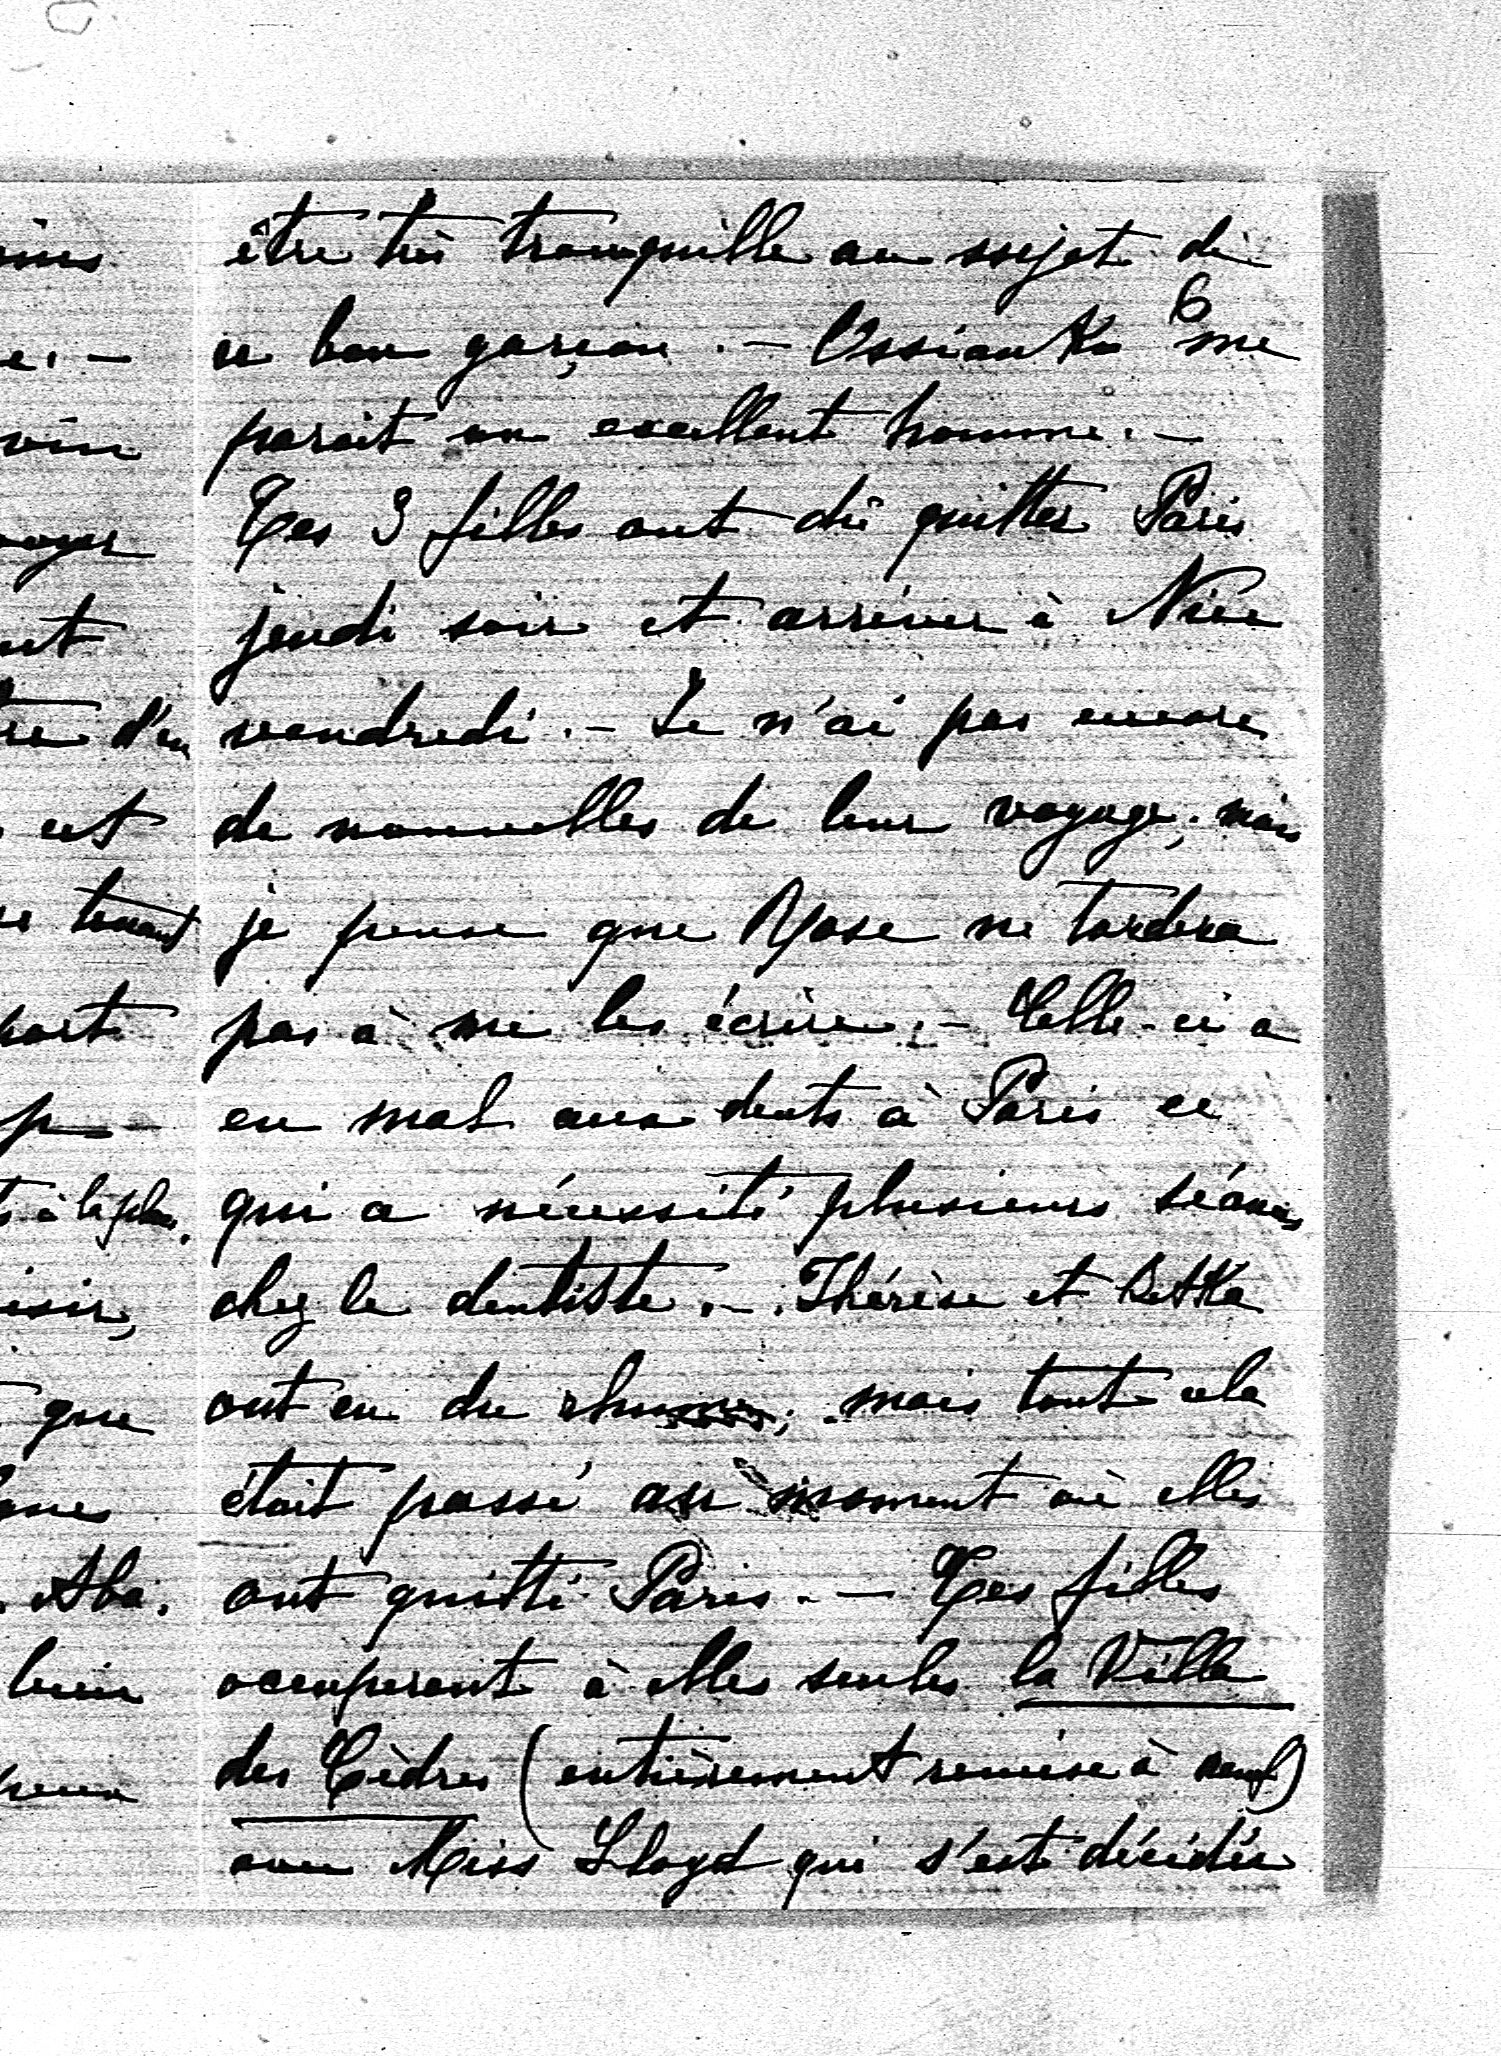 être très tranquille au sujet de
6
ce bon garçon. — Ossianko me
parait un excellent homme. —
Tes 3 filles ont dû quitter Paris
jeudi soir et arriver à Nice
vendredi. — Je n'ai pas encore
de nouvelles de leur voyage, mais
je pense que Rose ne tardera
pas à me les écrire. — Celle-ci a
eu mal aux dents à Paris ce
qui a nécessité plusieurs séances
chez le dentiste. — Thérèse et Betka
ont eu du rhume, mais tout cela
était passé au moment où elles
ont quitté Paris. — Tes filles
occuperont à elles seules la Villa
des Cèdres (entièrement remise à neuf)
avec Miss Lloyd qui s'est décidée